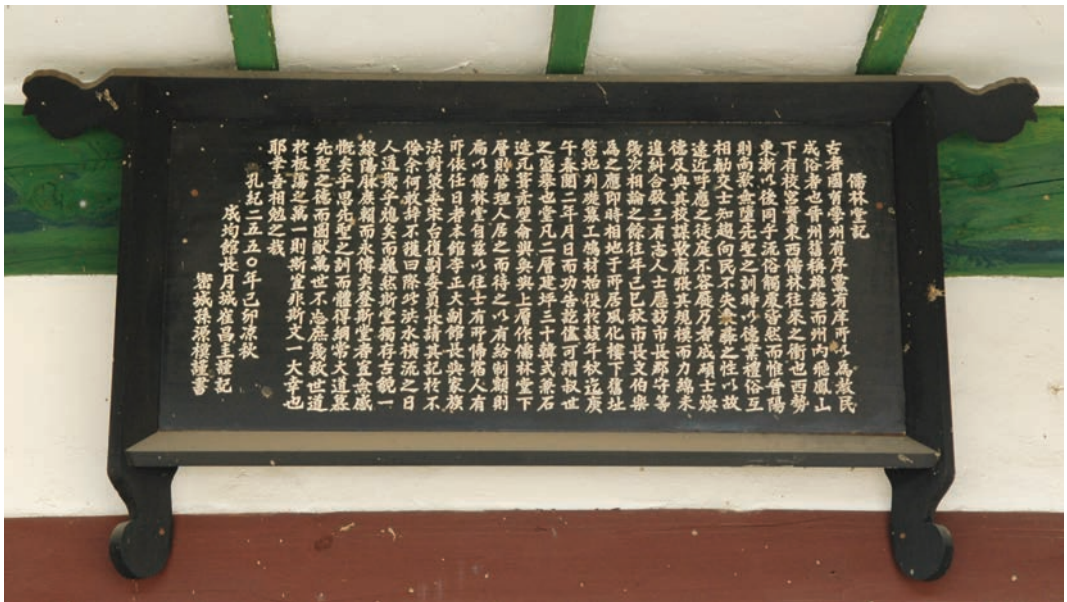 儒林堂記
古者國有學州有序黨有庠所以為敎民
成俗者也晉州舊稱雄藩而州內飛鳳山
下有校宮實東西儒林往來之衝也西勢
東漸以後同乎流俗觸處皆然而惟晉陽
則尙不墜先聖之訓時以德業禮俗互
相勸交士知趨向民不失秉彝之性以故
遠近呼應之徒庭不容屨乃者成碩士煥
德及與其校謀欲廓張其規模而力綿未
遑糾合敘三有志人士歷訪市長郡守等
幾次相論之餘往年己巳秋市長文伯樂
為之應即時相地于所居風化樓下舊址
墊地列礎募工鳩材始役於該年秋迄庚
午春閏二年月日而功告訖儘可謂叔世
之盛擧也堂凡二層建坪三十韓式兼石
造元聳靑壁侖奐與上層作儒林堂下
層則管理人居之而待之以有給制顧則
扁以儒林堂自玆以往士有所怖翁人有
所依仕日者本館李正大副館長與家族
法對策委宋台復副委員長請其記於不
佞余何敢辭不穫曰際此洪水橫流之日
人道幾乎熄矣而巍然斯堂獨存古貌一
線陽脉庶賴而永傳矣登斯堂者豈無感
慨矣乎思先聖之訓而體得綱常大道慕
先聖之德而圖猷萬世不忘庶幾救世道
於板蕩之萬一則斯豈非斯文一大幸也
耶幸吾相勉之哉
孔紀二五五〇年己卯凉秋
成均館長月城崔昌圭謹記
密城孫源模謹書